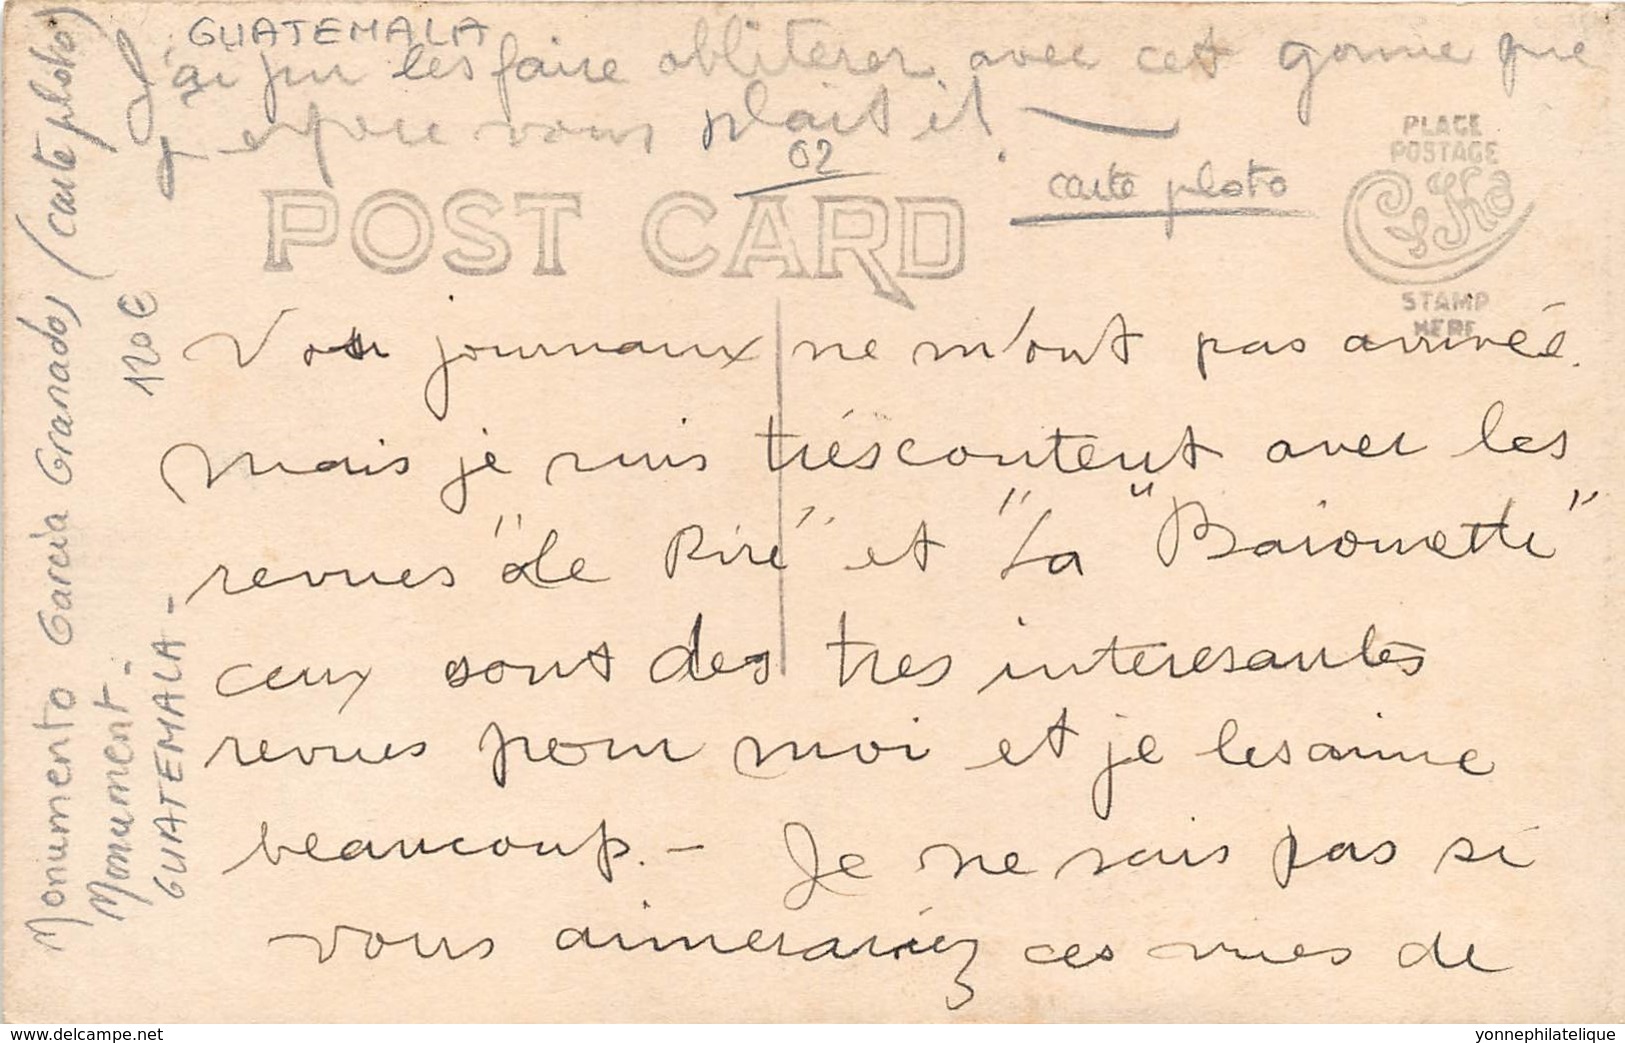 GUATEMALA
J'ai pu les faire obliterer avec cet gome que
j'espere vous plait il
02
carte photo
PLACE
POSTAGE
STAMP
HERE
POST CARD
Vos journaux ne m'ont pas arrivée.
mais je suis trés content avec les
revues "Le Rire" et "La "Baionette"
ceux sont des tres interesantes
revues pour moi et je les aime
beaucoup. - Je ne sais pas si
vous aimerariez ces vues de
Monumento Garcia Granados (carte photo)
Monument -
GUATEMALA -
120€
delcampe.net
yonnephilatelique